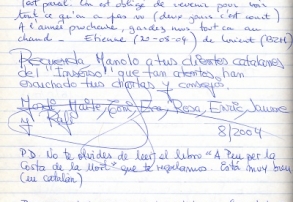 est paral. On est obligé de revenir pour voir
tout ce qu'on a pas vu (deux jours c'est court)
A l'année prochaine, gardez nous tout ça au
chaud - Etienne (22-08-04) de Lorient (BZH)
Recuerda Manolo a tus clientes catalanes
del "Inserso" que tan atentos han
escuchado tus charlas y consejos.
Maite, Toni, Eva, Rosa, Enric, Jaume
y Rafi
8/2004
P.D. No te olvides de leer el libro "A Peu per la
Costa de la Mort" que te regalamos. Está muy bien
(en catalán)